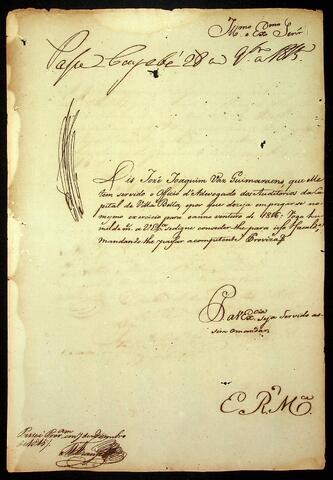 Illmo. e Exmo. Senr.
Passe Cuyabá 28 de 9bro. de 1815.
Diz Jozé Joaquim Vaz Guimaraens, que elle
tem servido o Officio d'Advogado dos Auditorios da Ca-
pital de Villa Bella, e por que dezeja empregar-se no
mesmo exercicio para o anno venturo de 1816: Roga hu-
mildem. a V. Exa. se digne conceder-lhe para isso faculd.e
mandando-lhe passar a competente Provizão
Pa. V. Exa. seja servido as-
sim o mandar
E R Mce.
Passei Provam. em 7 de Dezembro
de 1815